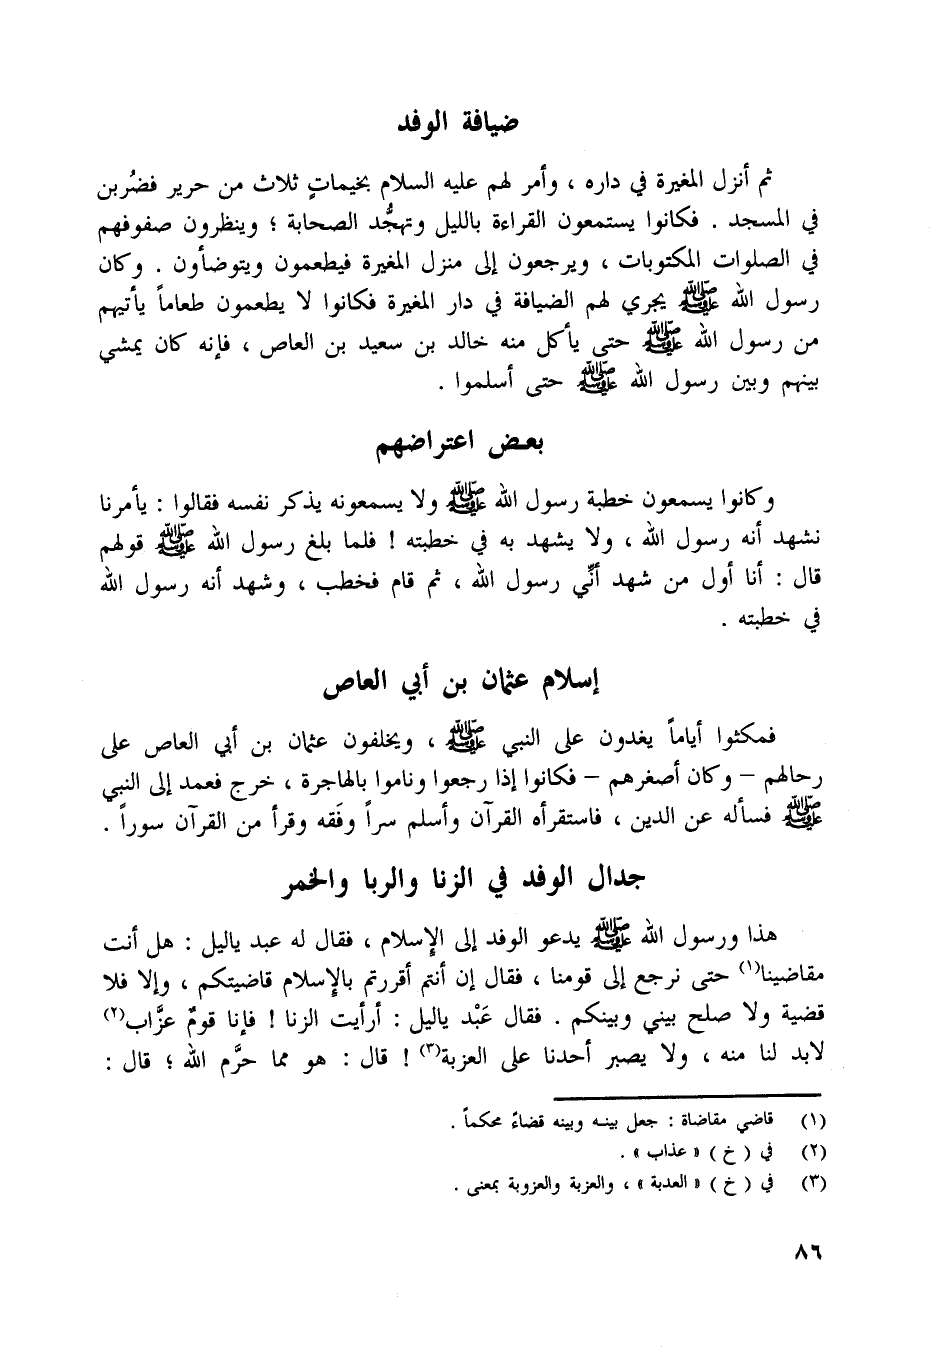 ضيافة الوفد
ثم أنزل المغيرة في داره ، وأمر لهم عليه السلام بخيماتٍ ثلاث من حرير فضُربن
في المسجد . فكانوا يستمعون القراءة بالليل وتهجُّد الصحابة ؛ وينظرون صفوفهم
في الصلوات المكتوبات ، ويرجعون إلى منزل المغيرة فيطعمون ويتوضأون . وكان
رسول الله ﷺ يجري لهم الضيافة في دار المغيرة فكانوا لا يطعمون طعاماً يأتيهم
من رسول الله ﷺ حتى يأكل منه خالد بن سعيد بن العاص ، فإنه كان يمشي
بينهم وبين رسول الله ﷺ حتى أسلموا .
بعض اعتراضهم
وكانوا يسمعون خطبة رسول الله ﷺ ولا يسمعونه يذكر نفسه فقالوا : يأمرنا
نشهد أنه رسول الله ، ولا يشهد به في خطبته ! فلما بلغ رسول الله ﷺ قولهم
قال : أنا أول من شهد أنِّي رسول الله ، ثم قام فخطب ، وشهد أنه رسول الله
في خطبته .
إسلام عثمان بن أبي العاص
فمكثوا أياماً يغدون على النبي ﷺ ، ويخلفون عثمان بن أبي العاص على
رحالهم – وكان أصغرهم – فكانوا إذا رجعوا وناموا بالهاجرة ، خرج فعمد إلى النبي
ﷺ فسأله عن الدين ، فاستقرأه القرآن وأسلم سراً وفَقه وقرأ من القرآن سوراً .
جدال الوفد في الزنا والربا والخمر
هذا ورسول الله ﷺ يدعو الوفد إلى الإسلام ، فقال له عبد ياليل : هل أنت
مقاضينا(١) حتى نرجع إلى قومنا ، فقال إن أنتم أقررتم بالإسلام قاضيتكم ، وإلا فلا
قضية ولا صلح بيني وبينكم . فقال عَبْد ياليل : أرأيت الزنا ! فإنا قومٌ عزَّاب(٢)
لابد لنا منه ، ولا يصبر أحدنا على العزبة(٣) ! قال : هو مما حرَّم الله ؛ قال :
(١) قاضي مقاضاة : جعل بينه وبينه قضاءً محكماً .
(٢) في ( خ ) « عذاب » .
(٣) في ( خ ) « العدبة » ، والعزبة والعزوبة بمعنى .
٨٦